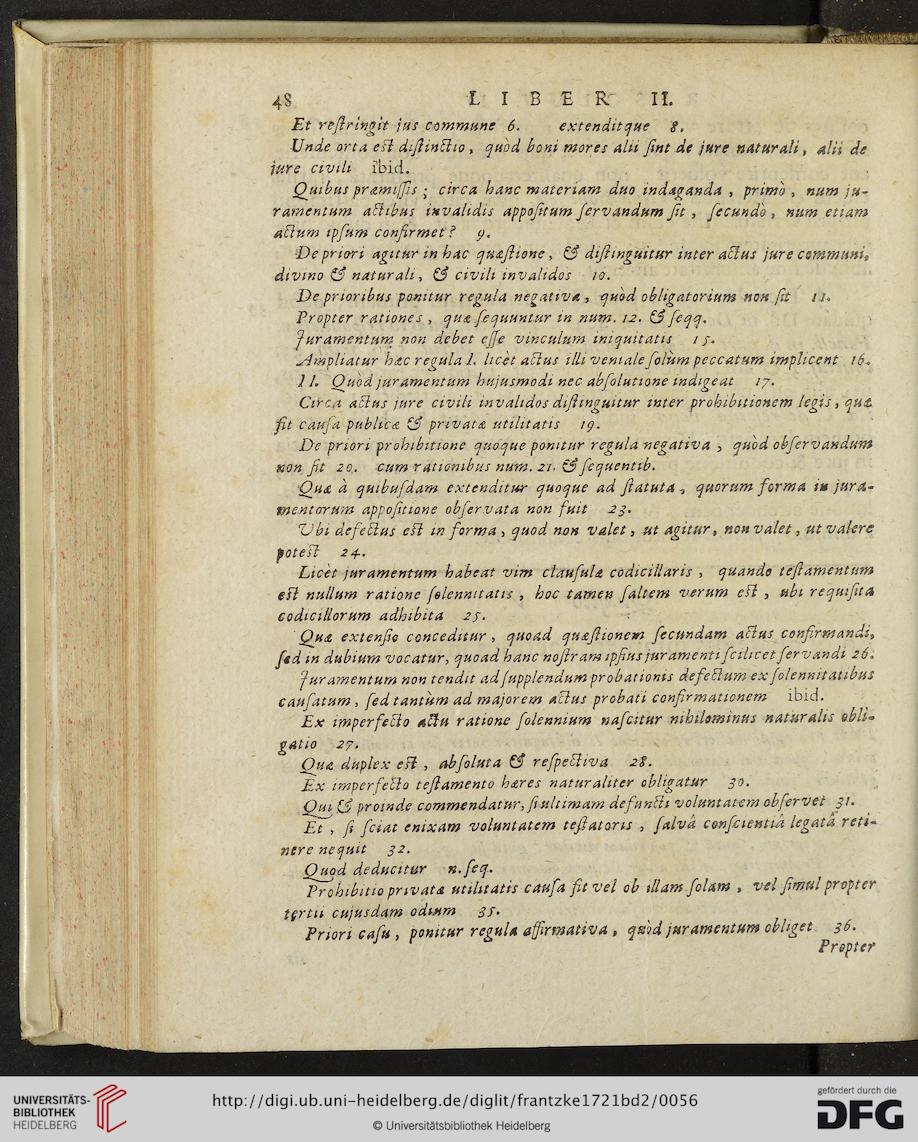 48 LIBER II.
Et reſtringit jus commune 6. extenditque 8.
Unde orta eſt diſtinctio, quòd boni mores alii ſint de jure naturali, alii de
jure civili ibid.
Quibus præmiſſis; circa hanc materiam duo indaganda, primò, num ju-
ramentum actibus invalidis appoſitum ſervandum ſit, ſecundò, num etiam
actum ipſum confirmet? 9.
De priori agitur in hac quæſtione, & diſtinguitur inter actus jure communi,
divino & naturali, & civili invalidos 10.
De prioribus ponitur regula negativa, quòd obligatorium non ſit 11.
Propter rationes, quæ ſequuntur in num. 12. & ſeqq.
Juramentum non debet eſſe vinculum iniquitatis 15.
Ampliatur hæc regula I. licèt actus illi veniale ſolùm peccatum implicent 16.
II. Quòd juramentum hujusmodi nec abſolutione indigeat 17.
Circa actus jure civili invalidos diſtinguitur inter prohibitionem legis, quæ
fit cauſa publicæ & privatæ utilitatis 19.
De priori prohibitione quoque ponitur regula negativa, quòd obſervandum
non ſit 20. cum rationibus num. 21. & ſequentib.
Quæ à quibuſdam extenditur quoque ad ſtatuta, quorum forma in jura-
mentorum appoſitione obſervata non fuit 23.
Ubi defectus eſt in forma, quod non valet, ut agitur, non valet, ut valere
poteſt 24.
Licèt juramentum habeat vim clauſulæ codicillaris, quando teſtamentum
eſt nullum ratione ſolennitatis, hoc tamen ſaltem verum eſt, ubi requiſita
codicillorum adhibita 25.
Quæ extenſio conceditur, quoad quæſtionem ſecundam actus confirmandi,
ſed in dubium vocatur, quoad hanc noſtram ipſius juramenti ſcilicet ſervandi 26.
Juramentum non tendit ad ſupplendum probationis defectum ex ſolennitatibus
cauſatum, ſed tantùm ad majorem actus probati confirmationem ibid.
Ex imperfecto actu ratione ſolennium naſcitur nihilominus naturalis obli-
gatio 27.
Quæ duplex eſt, abſoluta & reſpectiva 28.
Ex imperfecto teſtamento hæres naturaliter obligatur 30.
Qui & proinde commendatur, ſi ultimam defuncti voluntatem obſervet 31.
Et, ſi ſciat enixam voluntatem teſtatoris, ſalvâ conſcientiâ legata reti-
nere nequit 32.
Quod deducitur n. ſeq.
Prohibitio privatæ utilitatis cauſa fit vel ob illam ſolam, vel ſimul propter
tertii cujusdam odium 35.
Priori caſu, ponitur regula affirmativa, quòd juramentum obliget 36.
Propter
UNIVERSITÄTS-
BIBLIOTHEK
HEIDELBERG
http://digi.ub.uni-heidelberg.de/diglit/frantzke1721bd2/0056
© Universitätsbibliothek Heidelberg
gefördert durch die
DFG